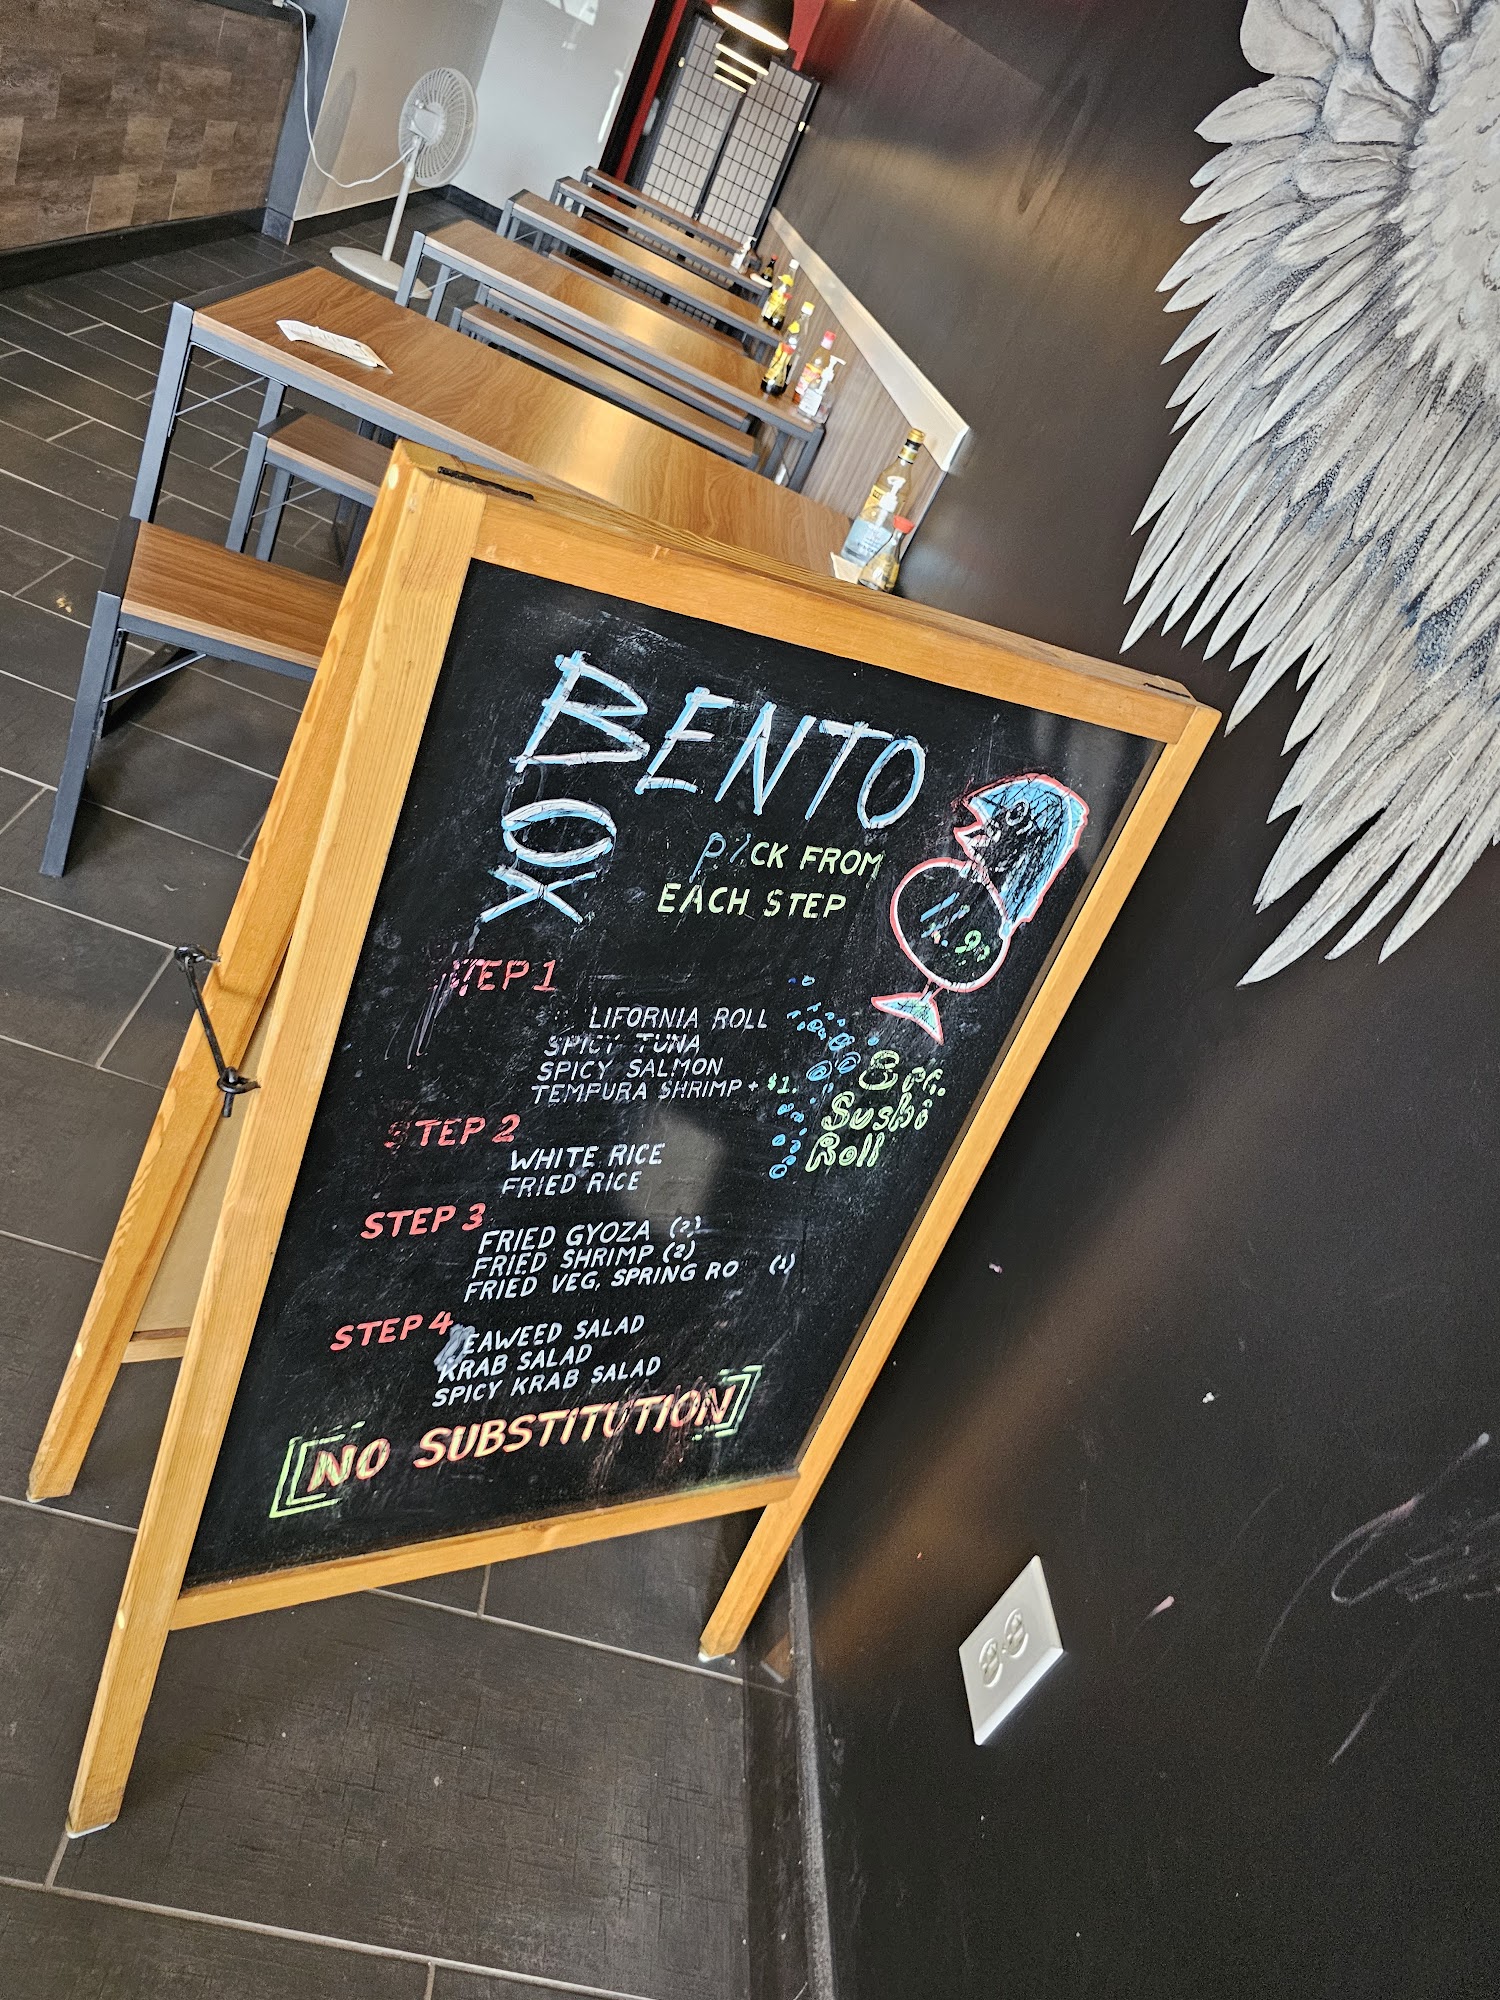 BENTO
BOX
PICK FROM
EACH STEP
11.90
STEP 1
LIFORNIA ROLL
SPICY TUNA
SPICY SALMON
TEMPURA SHRIMP + $1.
8 pc.
Sushi
Roll
STEP 2
WHITE RICE
FRIED RICE
STEP 3
FRIED GYOZA (2)
FRIED SHRIMP (2)
FRIED VEG. SPRING RO (1)
STEP 4
EAWEED SALAD
KRAB SALAD
SPICY KRAB SALAD
NO SUBSTITUTION